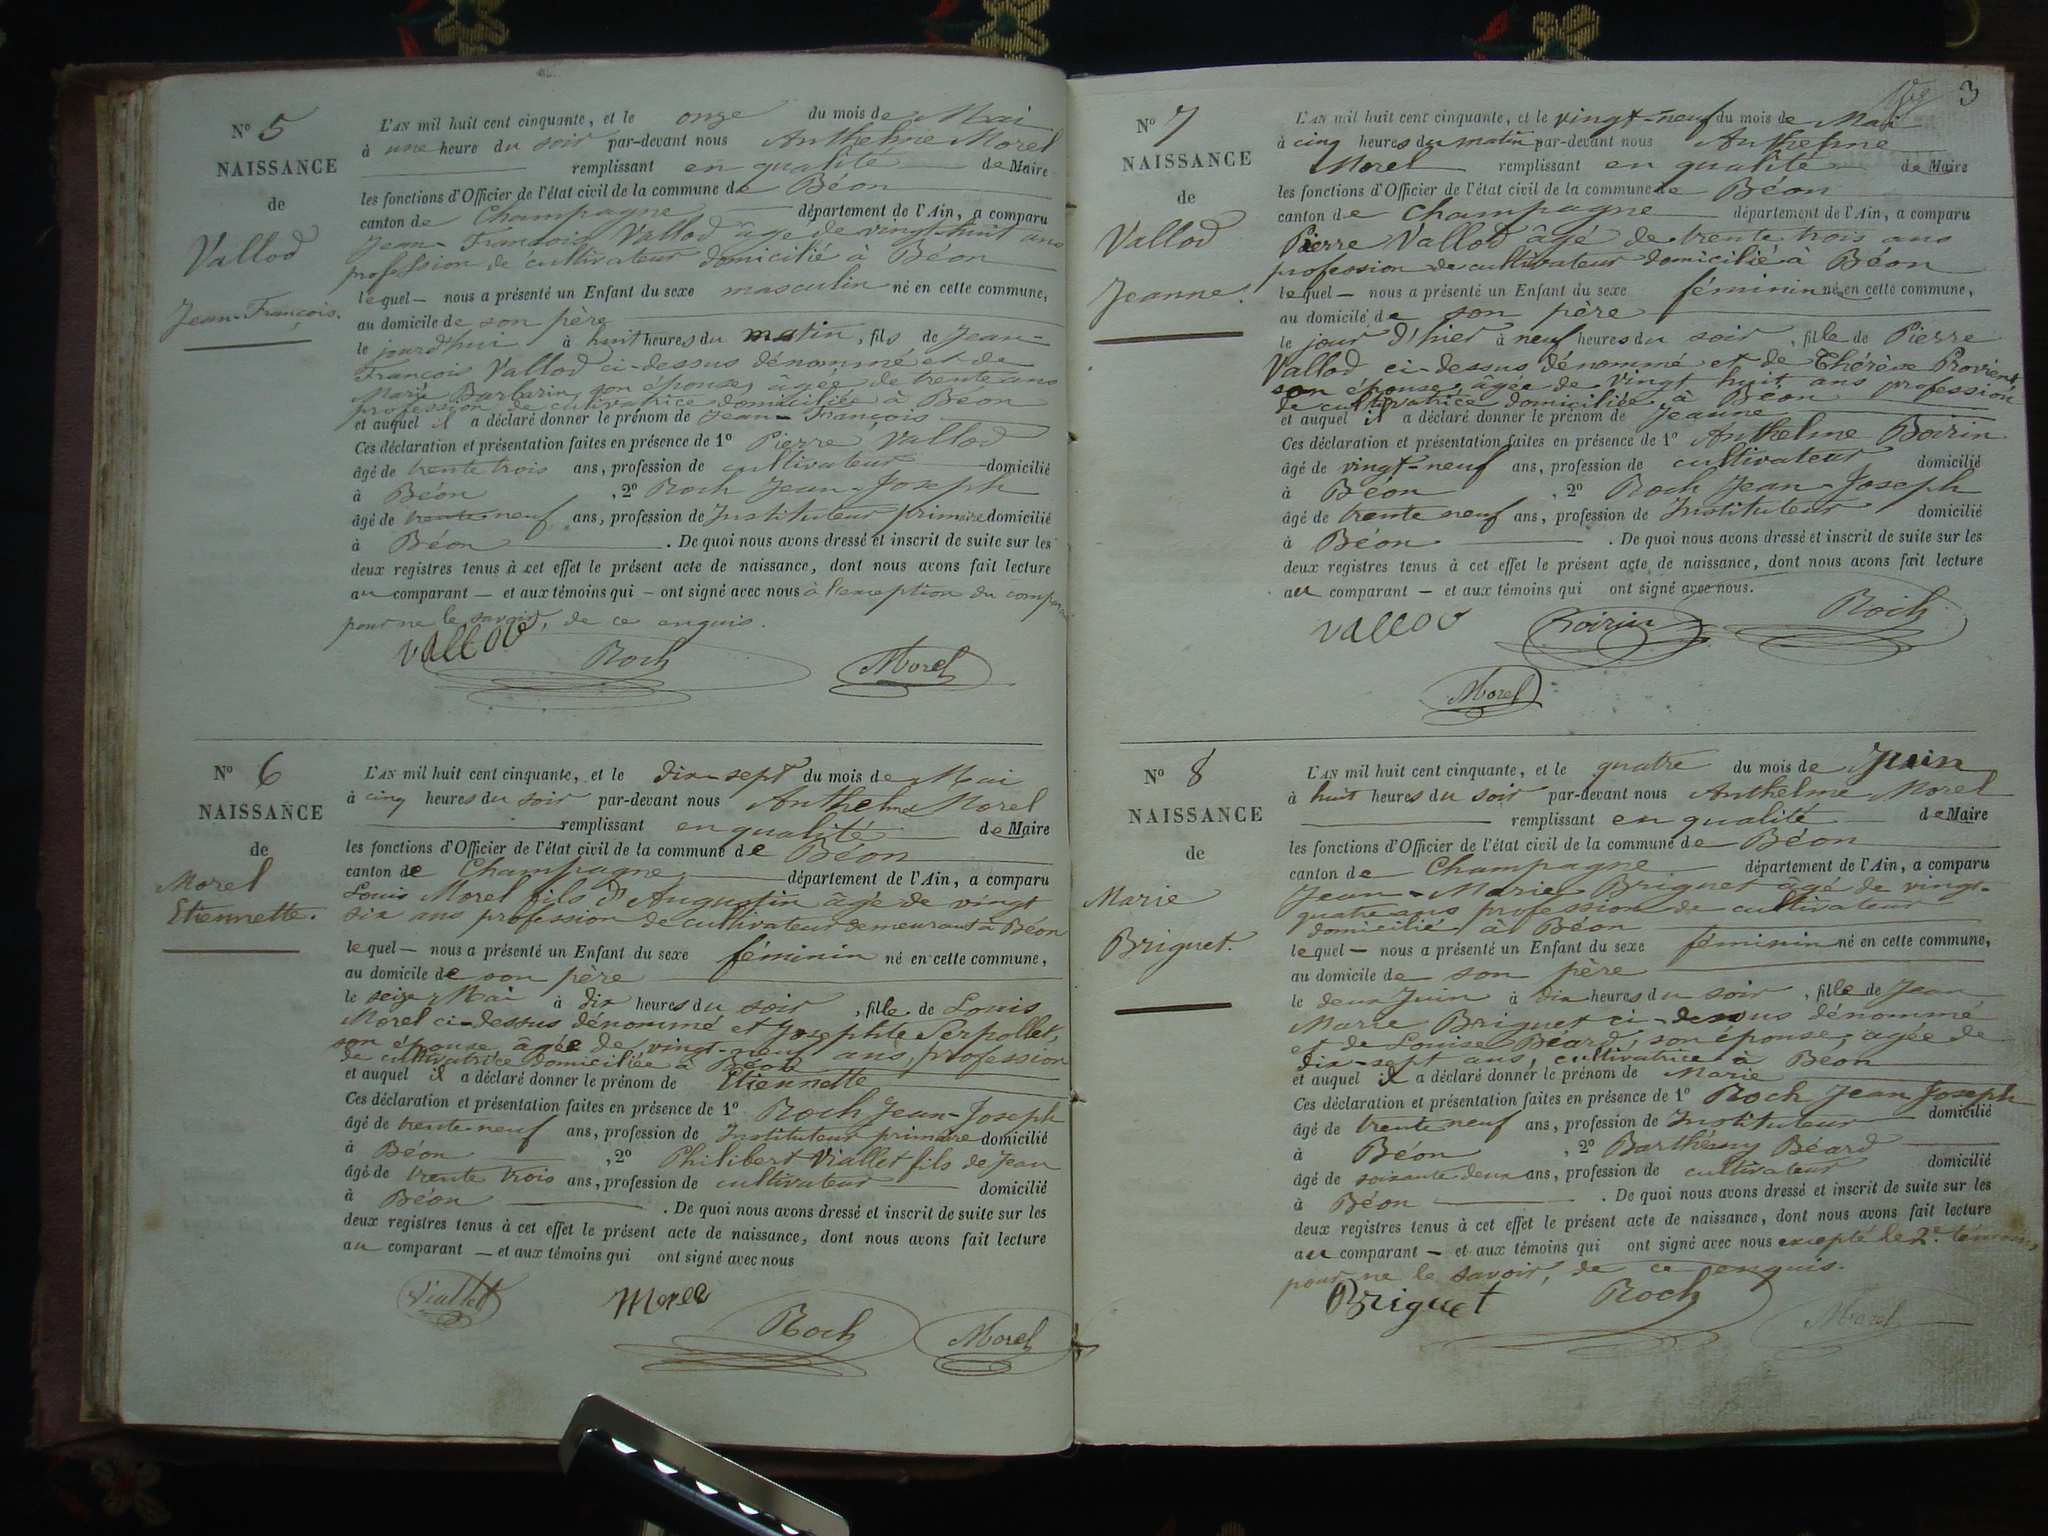 N° 5
NAISSANCE
de
Vallod
Jean-François.
L'AN mil huit cent cinquante, et le onze du mois de Mai
à une heure du soir par-devant nous Anthelme Morel
remplissant en qualité de Maire
les fonctions d'Officier de l'état civil de la commune de Béon
canton de Champagne département de l'Ain, a comparu
Jean-François Vallod âgé de vingt-huit ans
profession de cultivateur domicilié à Béon
lequel — nous a présenté un Enfant du sexe masculin né en cette commune,
au domicile de son père
le jourd'hui à huit heures du matin, fils de Jean-
François Vallod ci-dessus dénommé et de
Marie Barbarin son épouse, âgée de trente ans
profession de cultivatrice domiciliée à Béon
et auquel il a déclaré donner le prénom de Jean-François
Ces déclaration et présentation faites en présence de 1° Pierre Vallod
âgé de trente trois ans, profession de cultivateur domicilié
à Béon , 2° Roch Jean-Joseph
âgé de trente-neuf ans, profession de Instituteur primaire domicilié
à Béon . De quoi nous avons dressé et inscrit de suite sur les
deux registres tenus à cet effet le présent acte de naissance, dont nous avons fait lecture
au comparant — et aux témoins qui — ont signé avec nous à l'exception du comparant
pour ne le savoir, de ce enquis.
Vallod Roch Morel
N° 6
NAISSANCE
de
Morel
Etiennette.
L'AN mil huit cent cinquante, et le dix-sept du mois de Mai
à cinq heures du soir par-devant nous Anthelme Morel
remplissant en qualité de Maire
les fonctions d'Officier de l'état civil de la commune de Béon
canton de Champagne département de l'Ain, a comparu
Louis Morel fils d'Augustin âgé de vingt
six ans profession de cultivateur demeurant à Béon
lequel — nous a présenté un Enfant du sexe féminin né en cette commune,
au domicile de son père
le seize Mai à dix heures du soir , fille de Louis
Morel ci-dessus dénommé et Josephte Serpollet,
son épouse âgée de vingt-neuf ans, profession
de cultivatrice domiciliée à Béon
et auquel il a déclaré donner le prénom de Etiennette
Ces déclaration et présentation faites en présence de 1° Roch Jean-Joseph
âgé de trente-neuf ans, profession de Instituteur primaire domicilié
à Béon , 2° Philibert Viallet fils de Jean
âgé de trente trois ans, profession de cultivateur domicilié
à Béon . De quoi nous avons dressé et inscrit de suite sur les
deux registres tenus à cet effet le présent acte de naissance, dont nous avons fait lecture
au comparant — et aux témoins qui ont signé avec nous
Viallet Morel Roch Morel
3
N° 7
NAISSANCE
de
Vallod
Jeanne.
L'AN mil huit cent cinquante, et le vingt-neuf du mois de Mai
à cinq heures du matin par-devant nous Anthelme
Morel remplissant en qualité de Maire
les fonctions d'Officier de l'état civil de la commune de Béon
canton de Champagne département de l'Ain, a comparu
Pierre Vallod âgé de trente trois ans
profession de cultivateur domicilié à Béon
lequel — nous a présenté un Enfant du sexe féminin né en cette commune,
au domicile de son père
le jour d'hier à neuf heures du soir , fille de Pierre
Vallod ci-dessus dénommé et de Thérèse
son épouse, âgée de vingt huit ans profession
de cultivatrice domiciliée à Béon
et auquel il a déclaré donner le prénom de Jeanne
Ces déclaration et présentation faites en présence de 1° Anthelme Boirin
âgé de vingt-neuf ans, profession de cultivateur domicilié
à Béon , 2° Roch Jean-Joseph
âgé de trente neuf ans, profession de Instituteur domicilié
à Béon . De quoi nous avons dressé et inscrit de suite sur les
deux registres tenus à cet effet le présent acte de naissance, dont nous avons fait lecture
au comparant — et aux témoins qui ont signé avec nous.
Vallod Boirin Roch
Morel
N° 8
NAISSANCE
de
Marie
Briguet.
L'AN mil huit cent cinquante, et le quatre du mois de Juin
à huit heures du soir par-devant nous Anthelme Morel
remplissant en qualité de Maire
les fonctions d'Officier de l'état civil de la commune de Béon
canton de Champagne département de l'Ain, a comparu
Jean-Marie Briguet âgé de vingt-
quatre ans profession de cultivateur
domicilié à Béon
lequel — nous a présenté un Enfant du sexe féminin né en cette commune,
au domicile de son père
le deux Juin à dix heures du soir , fille de Jean
Marie Briguet ci-dessus dénommé
et de Louise Béard, son épouse, âgée de
dix-sept ans, cultivatrice à Béon
et auquel il a déclaré donner le prénom de Marie
Ces déclaration et présentation faites en présence de 1° Roch Jean Joseph
âgé de trente neuf ans, profession de Instituteur domicilié
à Béon , 2° Barthémy Béard
âgé de soixante deux ans, profession de cultivateur domicilié
à Béon . De quoi nous avons dressé et inscrit de suite sur les
deux registres tenus à cet effet le présent acte de naissance, dont nous avons fait lecture
au comparant — et aux témoins qui ont signé avec nous excepté le 2e témoin
pour ne le savoir, de ce enquis.
Briguet Roch Morel